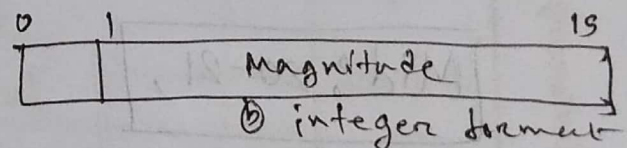 0 1 15
Magnitude
ⓑ integer format